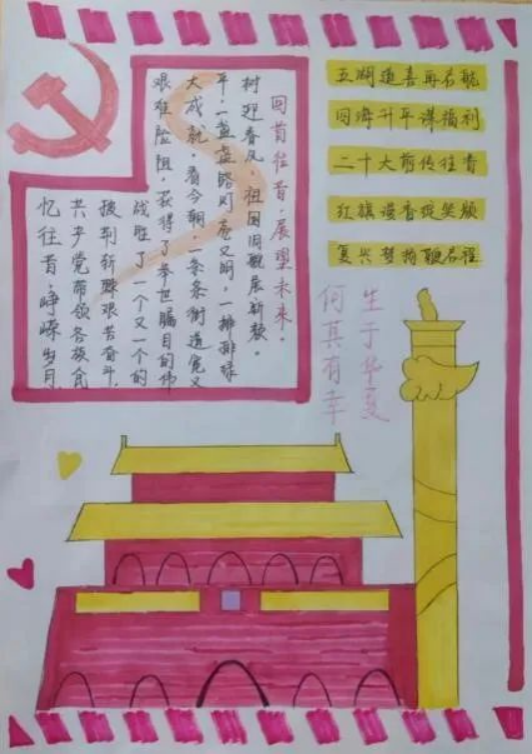 忆往昔,峥嵘岁月,
共产党带领各族人民
披荆斩棘艰苦奋斗,
战胜了一个又一个的
艰难险阻,获得了举世瞩目的伟
大成就。看今朝,一条条街道宽又
平,一盏盏路灯亮又明,一排排绿
树迎春风。祖国旧貌展新貌。
回首往昔,展望未来。
五湖道喜再启航
四海升平谋福利
二十大前传佳音
红旗漫卷绽笑颜
复兴梦扬鞭启程
生于华夏
何其有幸